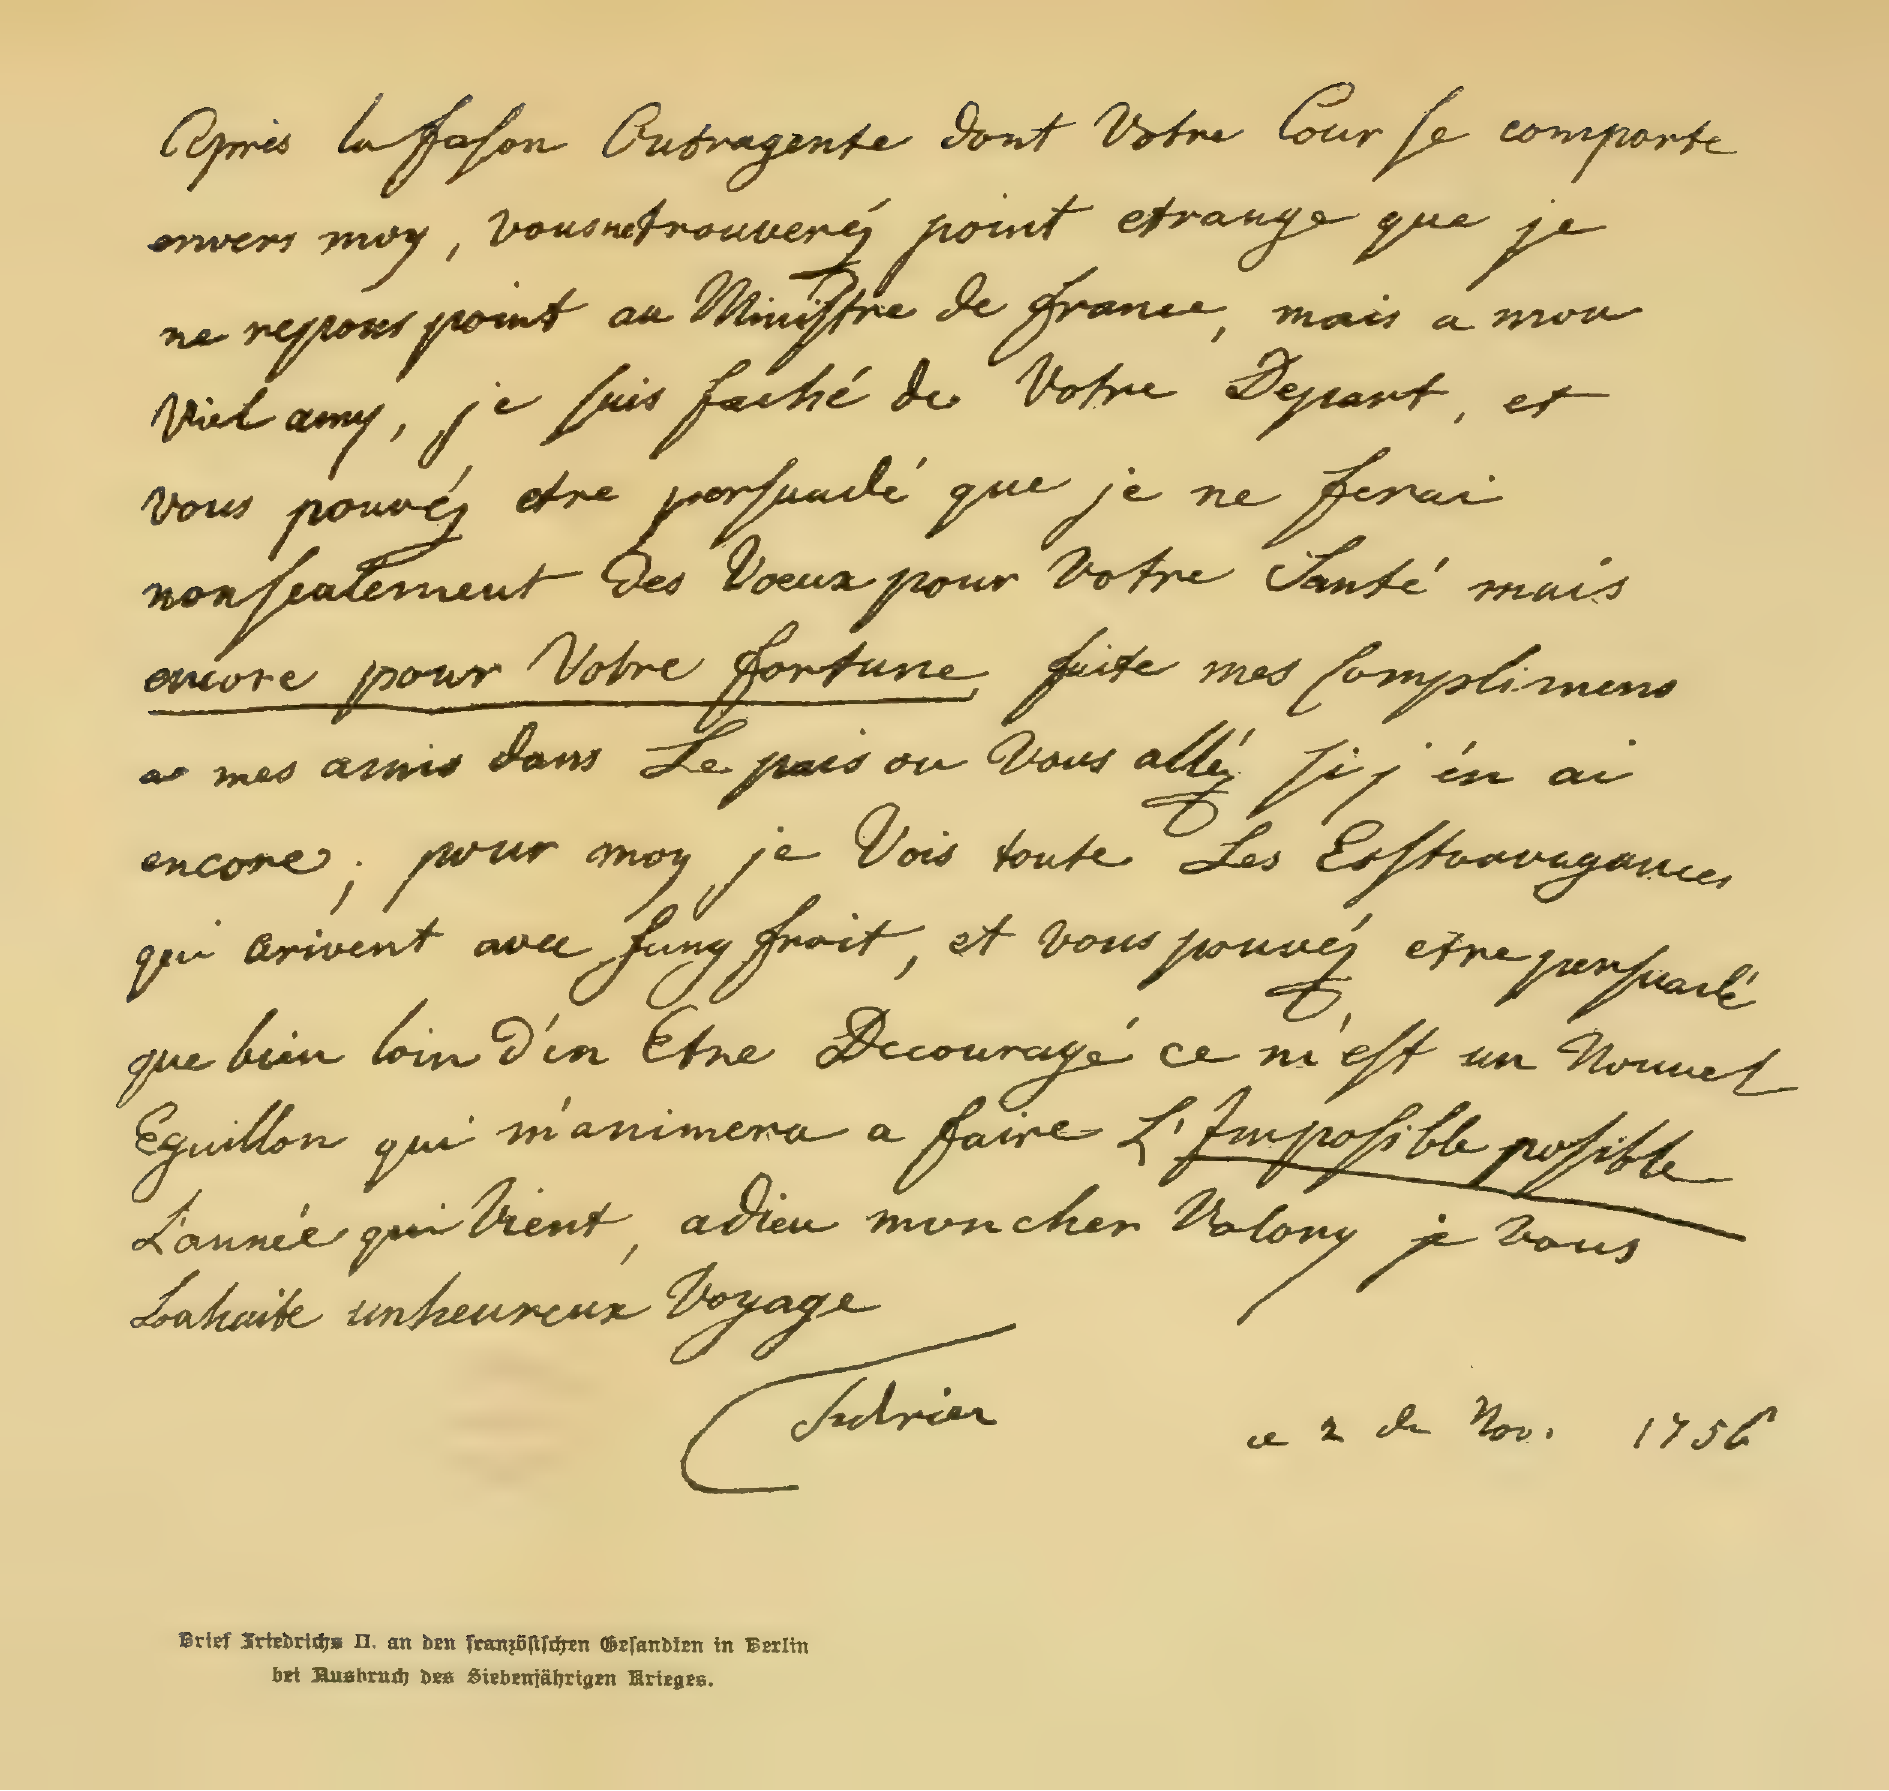 Après la fason Outragente dont Votre Cour se comporte
envers moy, vous ne trouveréz point etrange que je
ne repons point au Ministre de france, mais a mon
Viel amy, je suis faché de Votre Depart, et
vous pouvéz etre persuadé que je ne ferai
non sealement des Voeux pour Votre Santé mais
encore pour Votre fortune, faite mes Complimens
a mes amis dans Le païs ou Vous alléz si j'én ai
encore; pour moy, je Vois toute Les Esstravagances
qui arivent avec sung froit, et vous pouvéz etre persuadé
que bien loin d'én Etre Decouragé ce m'est un Nouvel
Eguillon qui m'animera a faire L'Imposible posible
L'année qui Vient, adieu mon cher Valory je vous
Souhaite un heureux Voyage
Federic
ce 2 de Nov. 1756
Brief Friedrichs II. an den französischen Gesandten in Berlin
bei Ausbruch des Siebenjährigen Krieges.